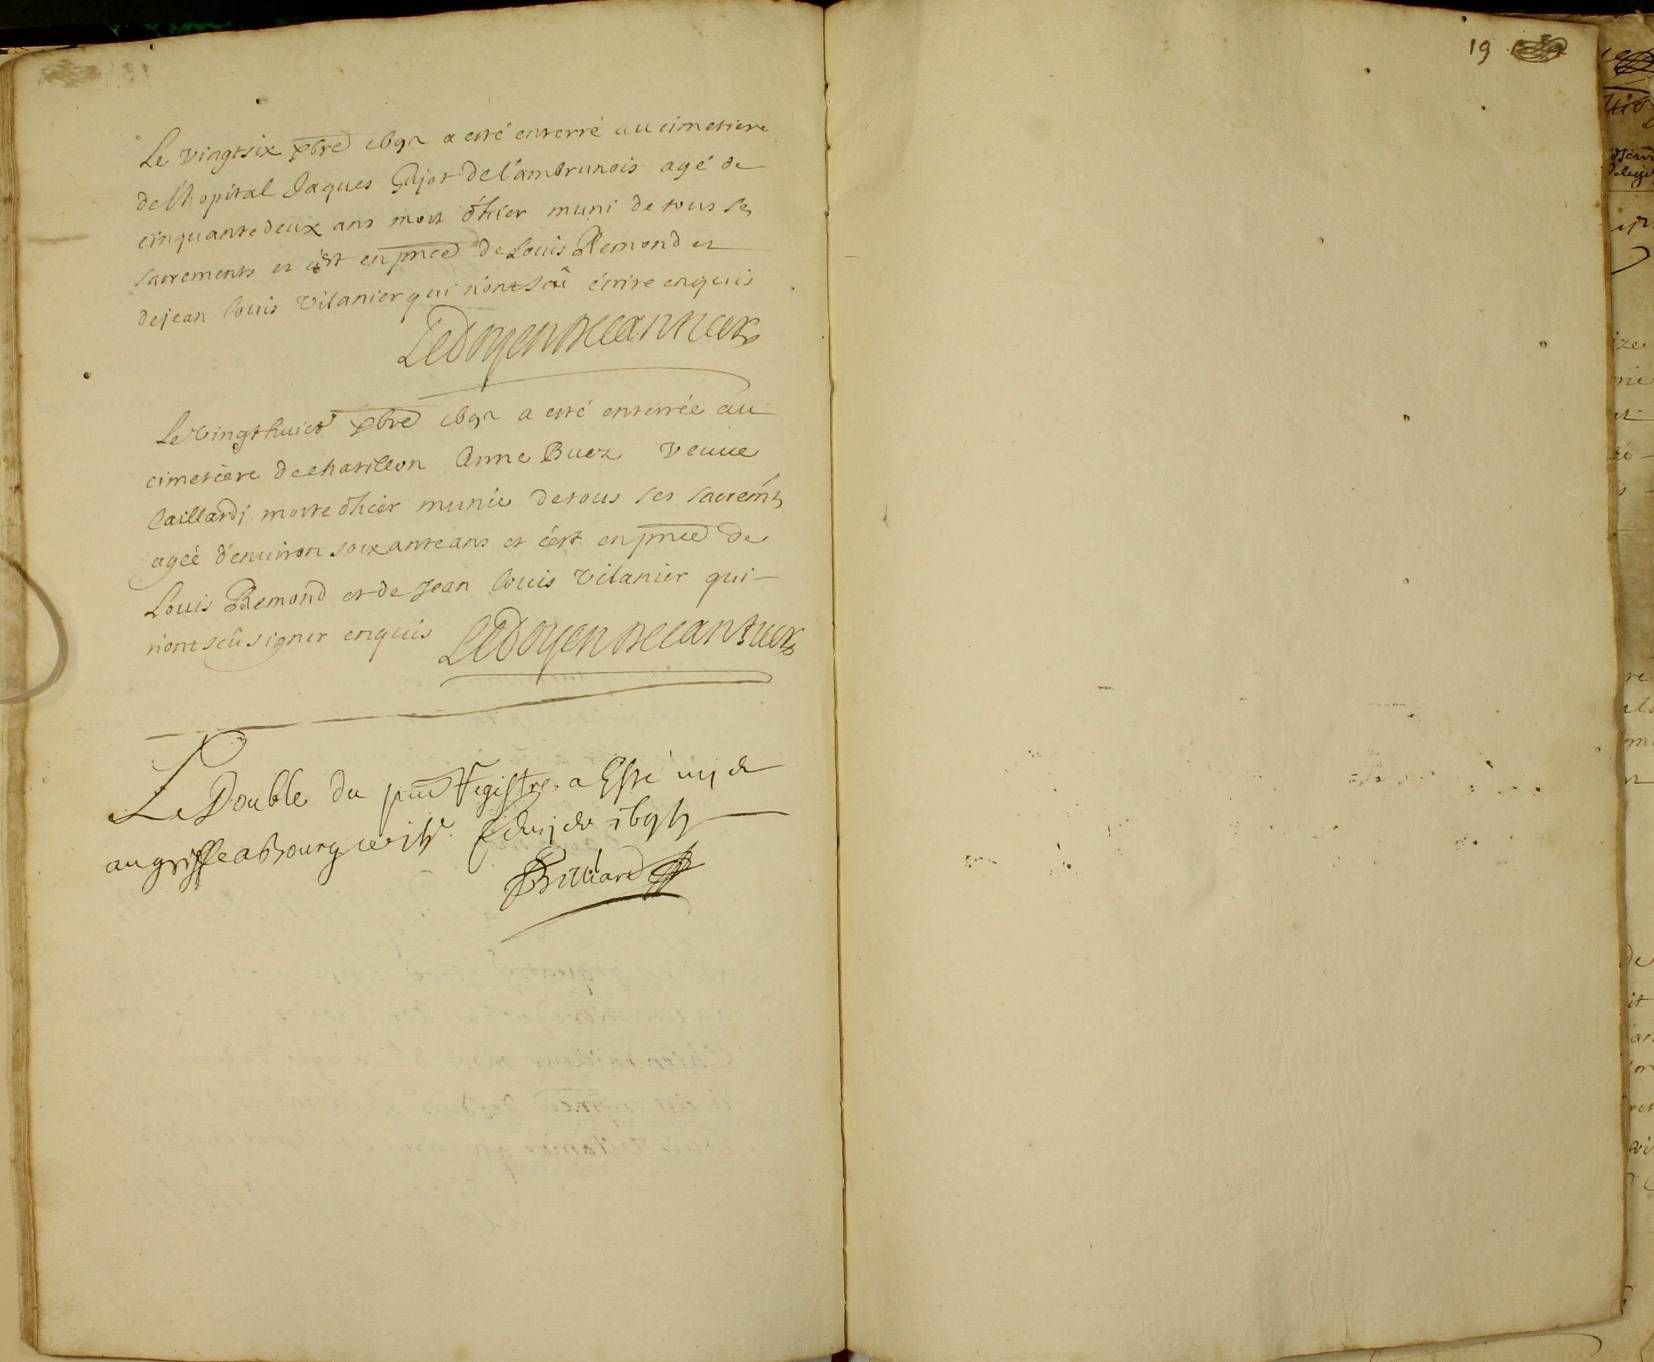 Le vingtsix xbre 1692 a esté enterré au cimetiere
de l'hopital Jaques Gajot de l'ambrunois agé de
cinquante deux ans mort d'hier muni de tous ses
sacrements et c'est en pnce de Louis Remond et
de jean louis Vilanier qui n'ont sçû écrire enquis
Ledoyen
Le vingt huict xbre 1692 a esté enterrée au
cimetière de chatillon Anne Buez veuue
Caillardj morte d'hier munie de tous ses sacremts
agée d'enuiron soixante ans et c'est en pnce de
Louis Remond et de Jean louis Vilanier qui
n'ont sçû signer enquis
Ledoyen
Le Double du pnt Registre a Esté
au griffe a Bourg ce
Brilliard
19